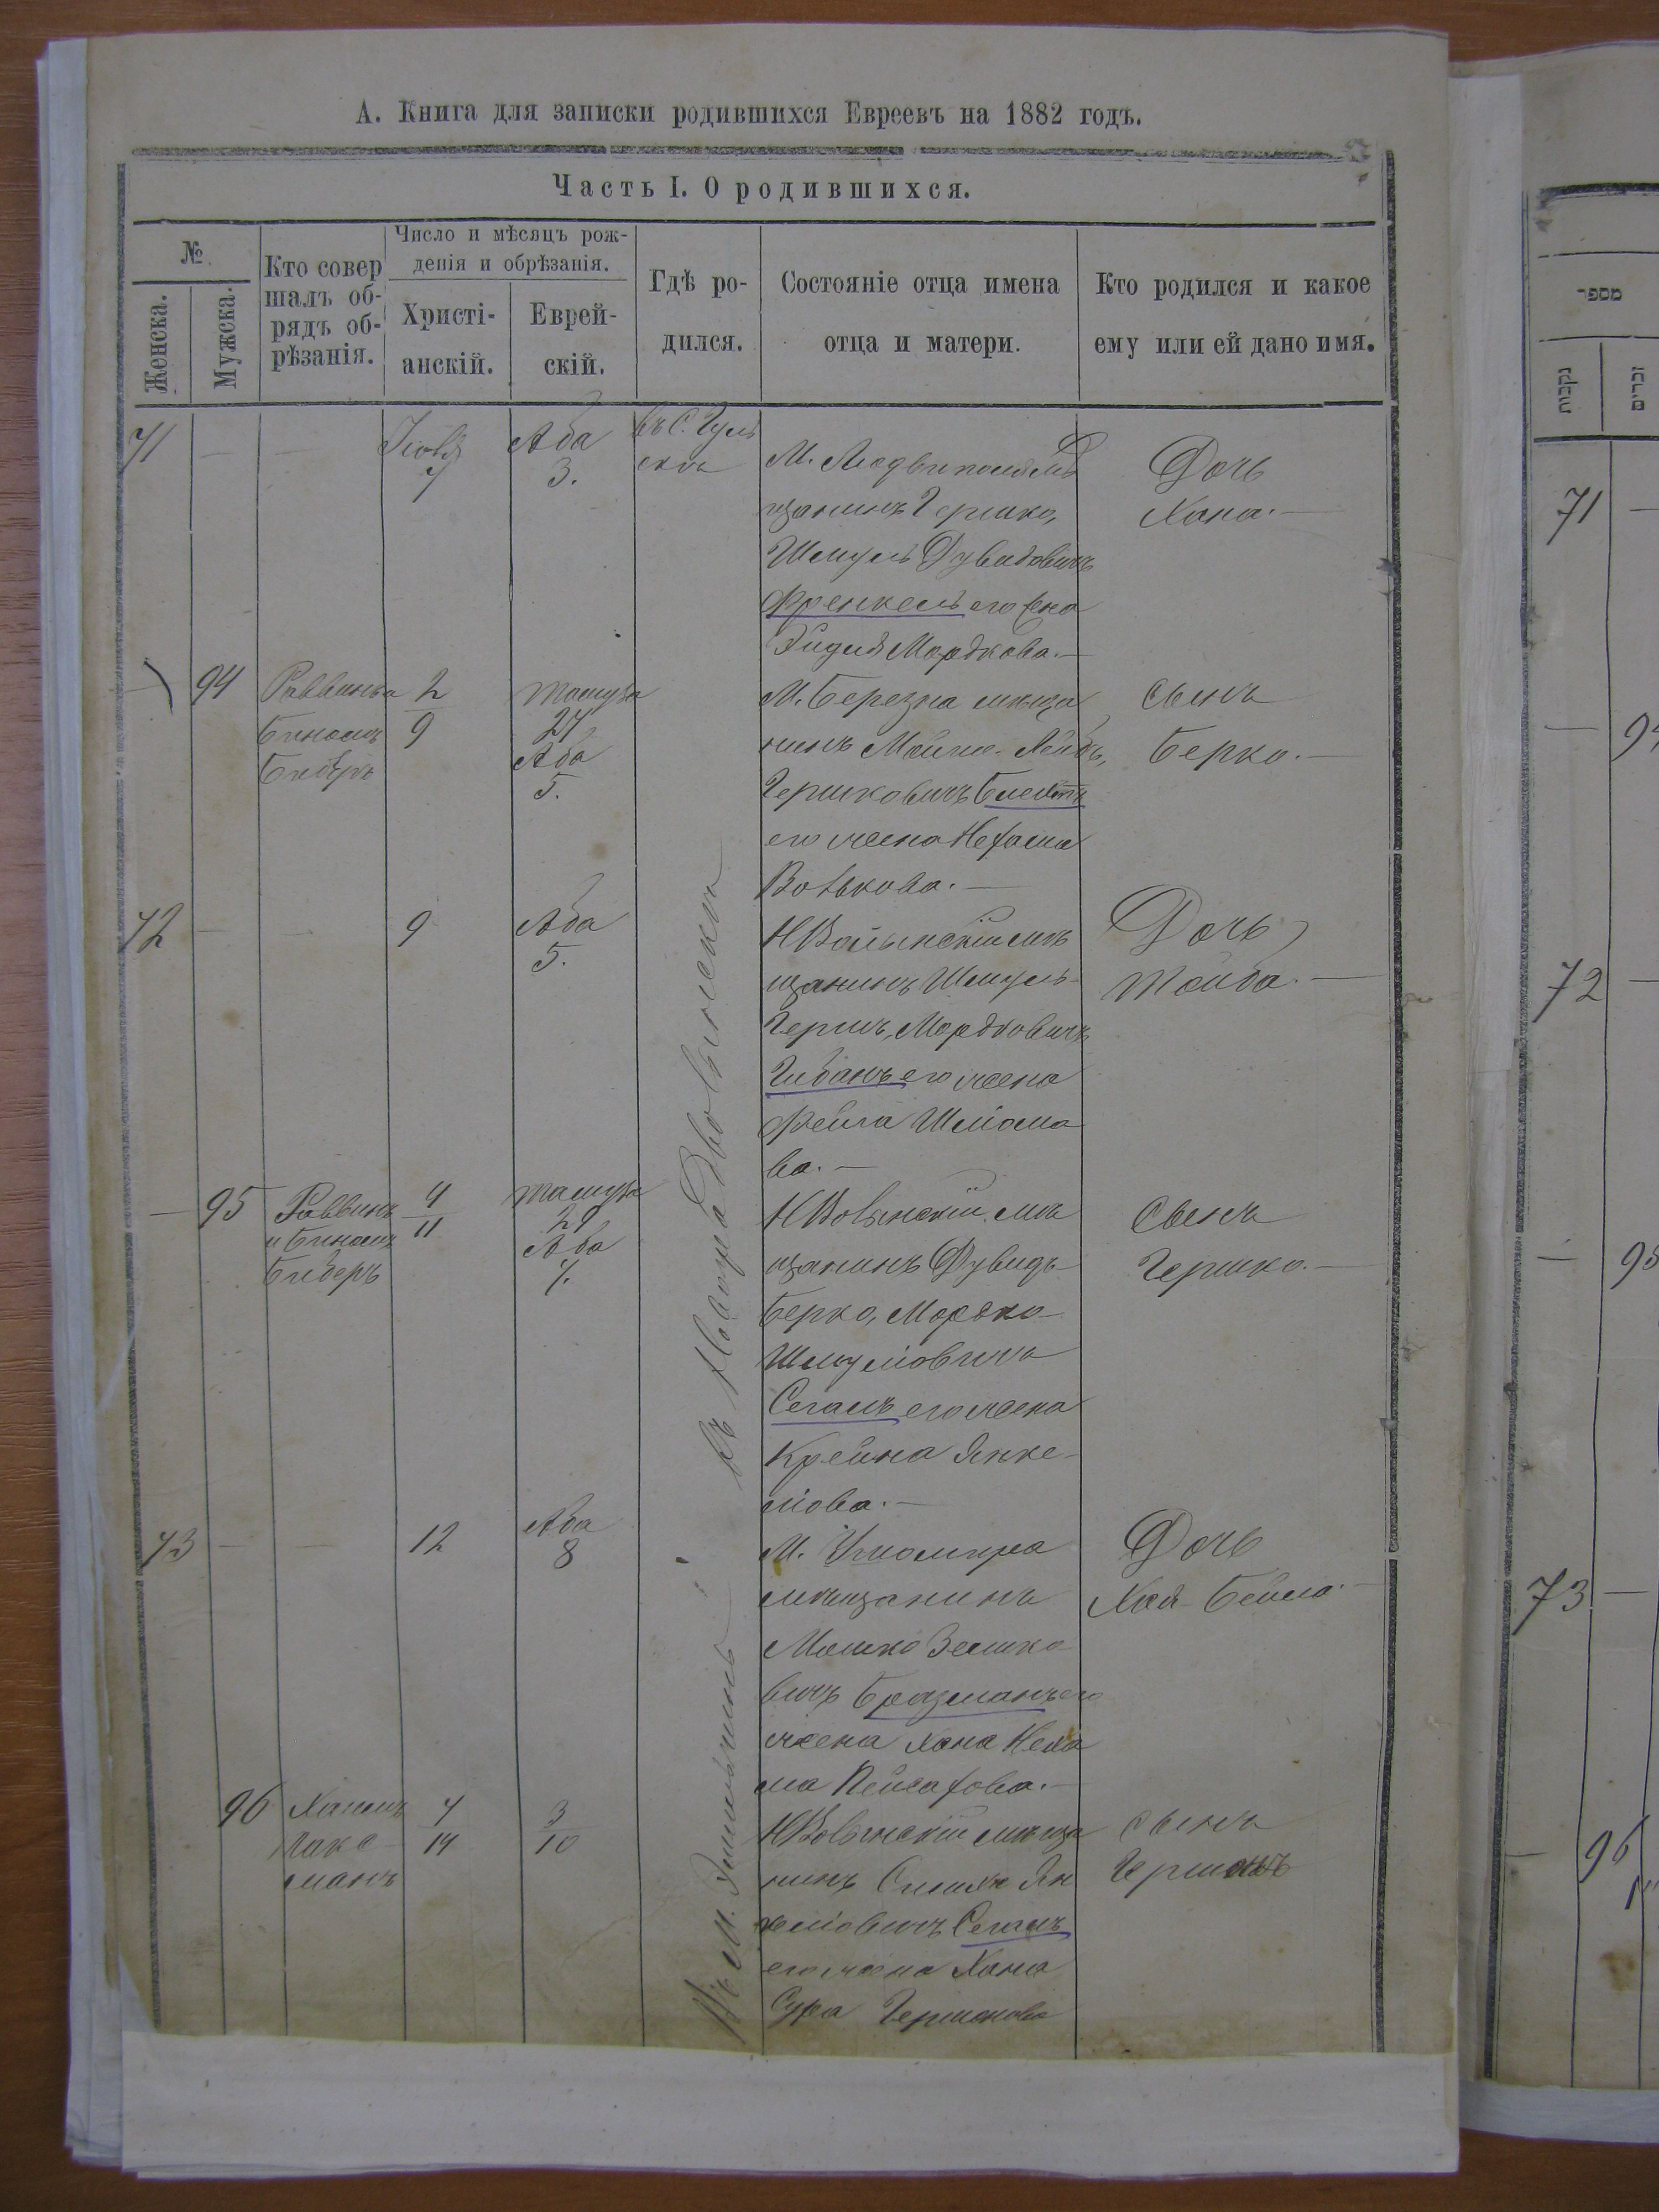 А. Книга для записки родившихся Евреевъ на 1882 годъ.
Часть I. О родившихся.
№
Женска.
Мужска.
Кто совер
шалъ об-
рядъ об-
рѣзанія.
Число и мѣсяцъ рож-
денія и обрѣзанія.
Христі-
анскій.
Еврей-
скій.
Гдѣ ро-
дился.
Состояніе отца имена
отца и матери.
Кто родился и какое
ему или ей дано имя.
71 — — Іюля
7
Аба
3.
въ С. Гуль
скъ
М. Людвиполя мѣ
щанинъ Гершко,
Шмуль Дувидовичъ
Френкель его жена
Эйдля Мордкова.—
Дочь
Хана.—
— 94 Раввинъ
Биномъ
Биберъ
2
9
Тамуза
27
Аба
5.
М. Березна мѣща
нинъ Мошко-Лейбъ,
Гершковичъ
его жена Нехама
Волькова.—
Сынъ
Берко.—
72 — — 9
Аба
5.
НВолынскій мѣ
щанинъ Шмуль-
Гершъ, Мордковичъ
его жена
Фейга Шліома
ва.—
Дочь
Тойба.—
— 95 Раввинъ
и Биномъ
Биберъ
4
11
Тамуза
29
Аба
7.
НВолынскій мѣ
щанинъ Дувидъ
Берко, Мордко
Шмуліовичъ
Сегалъ его жена
Крейна Янке-
ліова.—
Сынъ
Гершко.—
73 — — 12
Аба
8
М.
мѣщанинъ
Мошко Зелико
вичъ Бразманъ его
жена Хана Неха
ма Пейсахова.—
Дочь
Хая-Бейла.—
96 Хаимъ
Макс
манъ
7
14
3
10
НВолынскій мѣща
нинъ Симха Ян
келіовичъ Сегалъ
его жена Хана
Сура Гершкова
Сынъ
въ Новоградволынскѣ
Въ М.
מספר
נקבות
זכרים
71 —
— 94
72 —
— 95
73 —
— 96